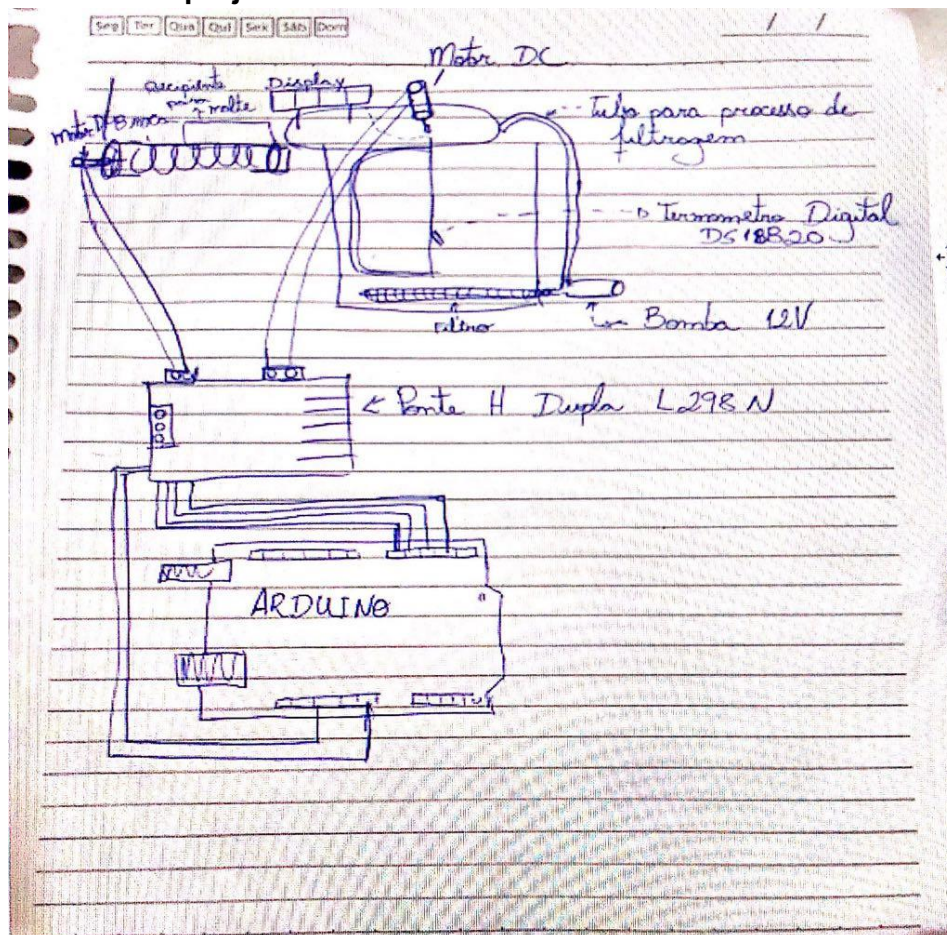 Seg Ter Qua Qui Sex Sáb Dom
/ /
Motor DC
Recipiente
para
malte
Display
Motor DC
Tubo para processo de
filtragem
Termometro Digital
DS18B20
Filtro
Bomba 12V
Ponte H Dupla L298N
ARDUINO